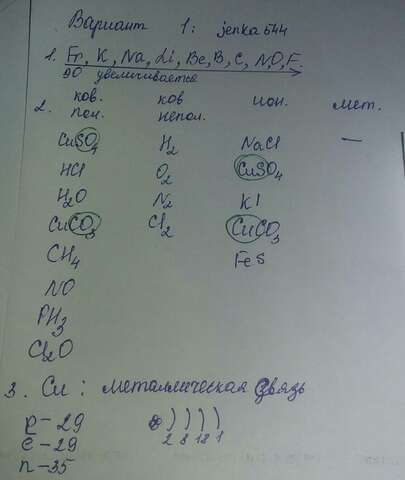 Вариант 1: jenka544
1. Fr, K, Na, Li, Be, B, C, N, O, F.
ЭО увеличивается
2. ков. пол. ков непол. ион. мет.
CuSO4 H2 NaCl —
HCl O2 CuSO4
H2O N2 KI
CuCO3 Cl2 CuCO3
CH4 FeS
NO
PH3
Cl2O
3. Cu: металлическая связь
p-29
e-29 2 8 18 1
n-35